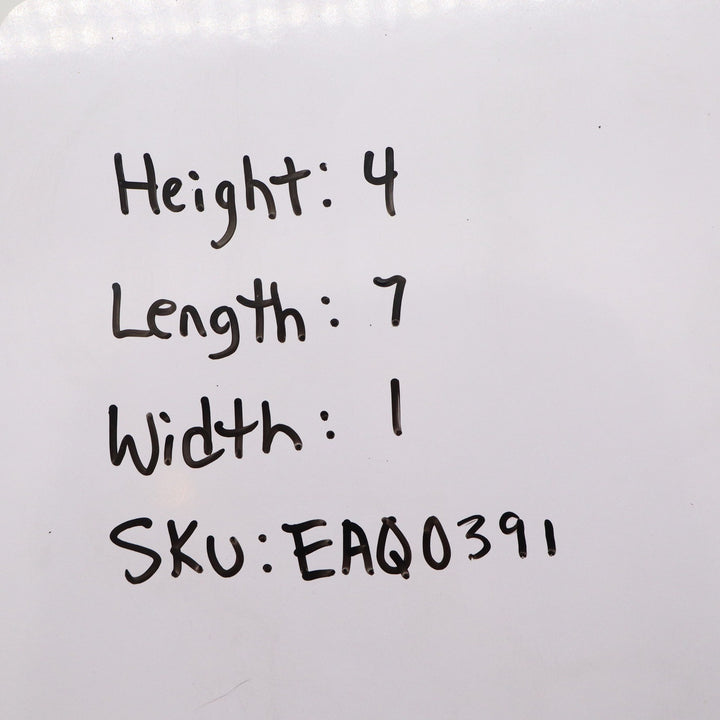 Height: 4
Length: 7
Width: 1
SKU: EAQ0391